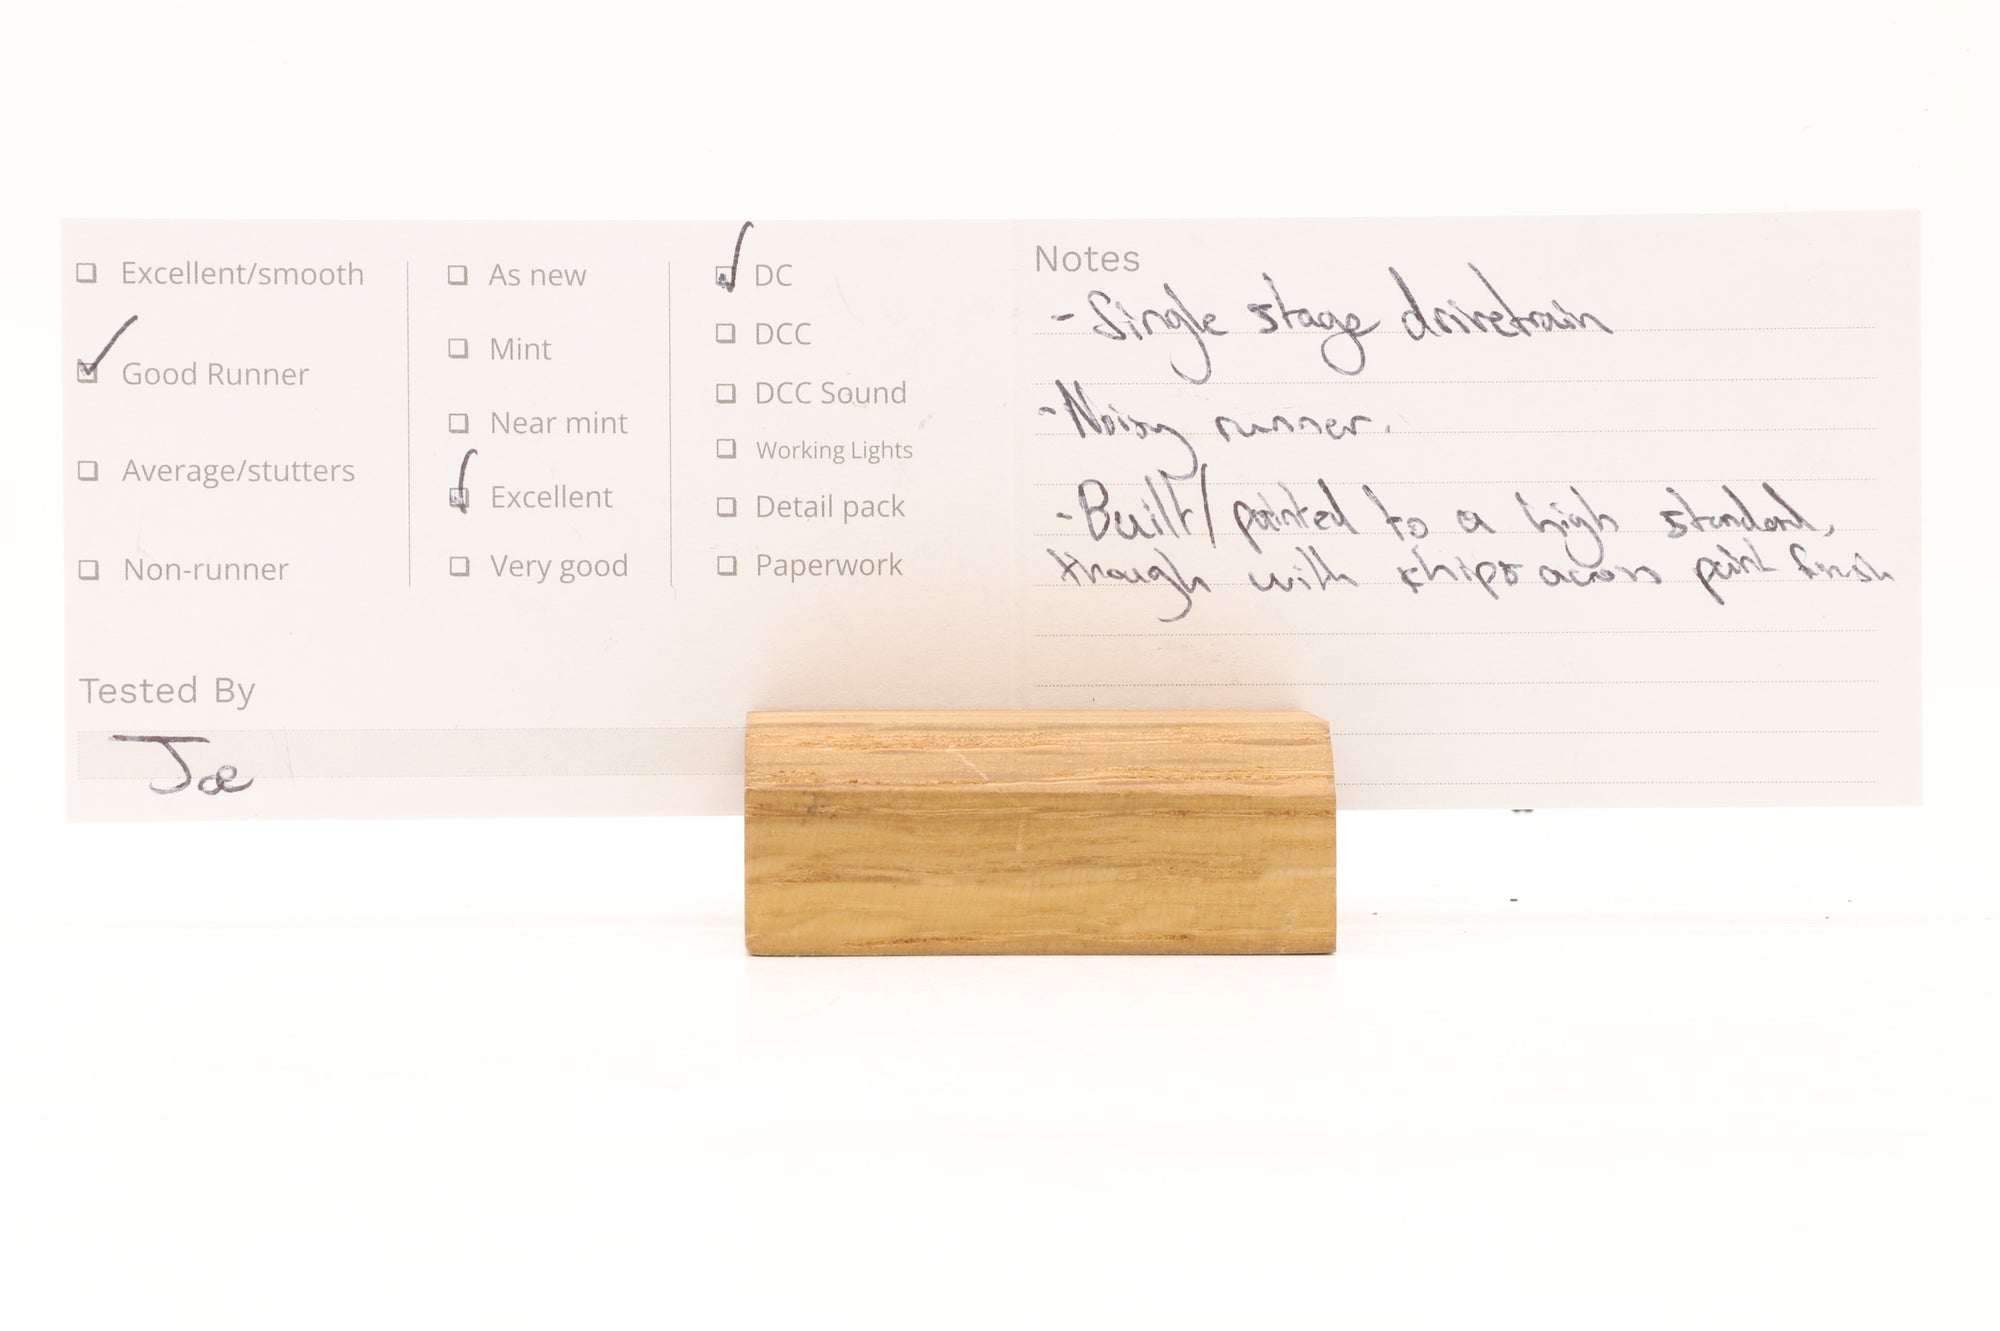 Excellent/smooth
Good Runner
Average/stutters
Non-runner
As new
Mint
Near mint
Excellent
Very good
DC
DCC
DCC Sound
Working Lights
Detail pack
Paperwork
Tested By
Joe
Notes
- Single stage drivetrain
- Noisy runner.
- Built/painted to a high standard,
though with chips across paint finish